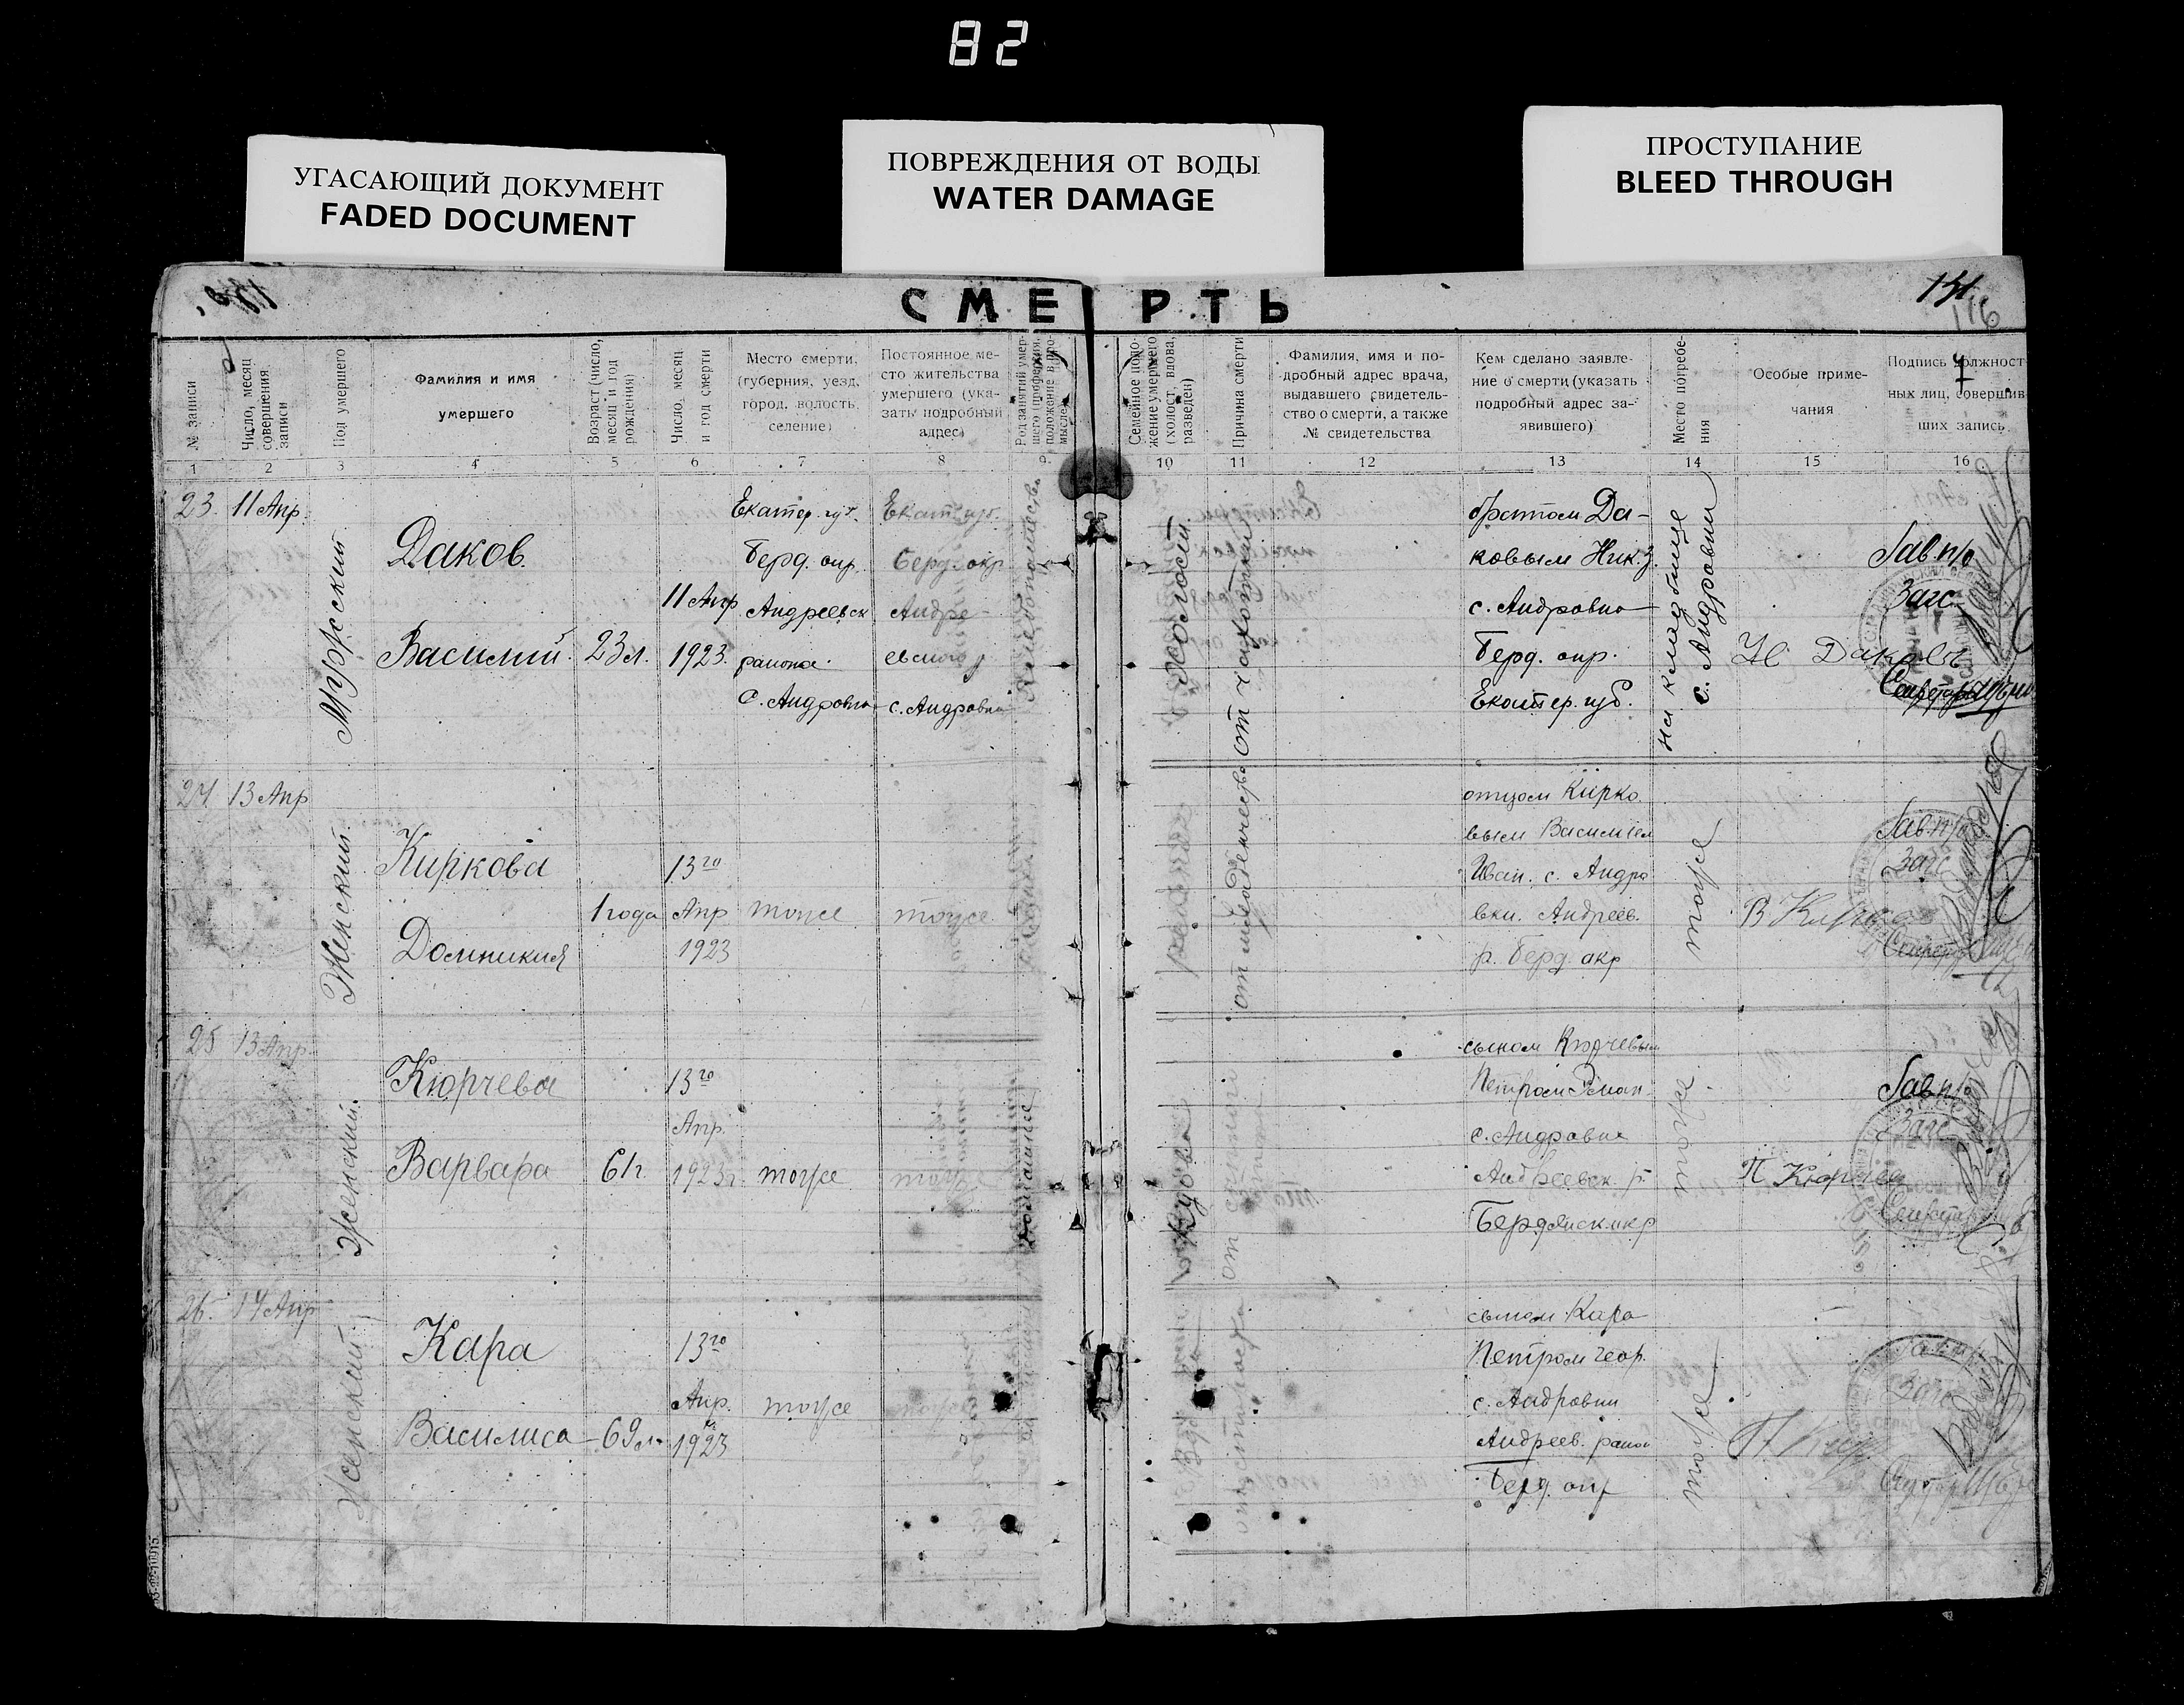 82
УГАСАЮЩИЙ ДОКУМЕНТ
FADED DOCUMENT
ПОВРЕЖДЕНИЯ ОТ ВОДЫ
WATER DAMAGE
ПРОСТУПАНИЕ
BLEED THROUGH
СМЕРТЬ
№ записи
Число, месяц
совершения
записи
Пол умершего
Фамилия и имя
умершего
Возраст (число,
месяц и год
рождения)
Число, месяц
и год смерти
Место смерти,
(губерния, уезд,
город, волость,
селение)
Постоянное ме-
сто жительства
умершего (ука-
зать подробный
адрес)
Род занятий умер-
шего (профессия,
положение в про-
мысле)
Семейное поло-
жение умершего
(холост, вдова,
разведен)
Причина смерти
Фамилия, имя и по-
дробный адрес врача,
выдавшего свидетель-
ство о смерти, а также
№ свидетельства
Кем сделано заявле-
ние о смерти (указать
подробный адрес за-
явившего)
Место погребе-
ния
Особые приме-
чания
Подпись должност-
ных лиц, совершив-
ших запись
1 2 3 4 5 6 7 8 9 10 11 12 13 14 15 16
23. 11 Апр.
Мужской
Даков
Василий. 23 л.
11 Апр
1923.
Екатер. губ.
Берд. окр.
Андреевск
района.
с. Андровка
Екат. губ.
Берд. окр
Андре-
евского р
с. Андровка
Хлебопашество
холост.
от чахотки
братом Да-
ковым Ник.
с. Андровка
Берд. окр.
Екатер. губ.
на кладбище
с. Андровки
Н Даков
Зав п/о
Загс
Секретарь
24. 13 Апр
Женский.
Киркова
Домникия
1 года
13го
Апр
1923
тоже
тоже
от младенчества
отцом Кирко
вым Василием
Иван. с. Андро
вки. Андреев.
р. Берд. окр
тоже
Зав п/о
Загс
Секретарь
25 13 Апр.
Женский.
Кюрчева
Варвара
61 г.
13го
Апр.
1923 г
тоже
тоже
домашнее
вдова
от старости
сыном Кюрчевым
Петром
с. Андровка
Андреевск. р.
Бердянск окр
тоже.
П Кюрчев
Зав п/о
Загс
Секретарь
26. 14 Апр
Женский
Кара
Василиса
69 л.
13го
Апр.
1923
тоже
тоже
сыном Кара
Петром Геор.
с. Андровки
Андреев. район
Берд. окр
тоже
Загс